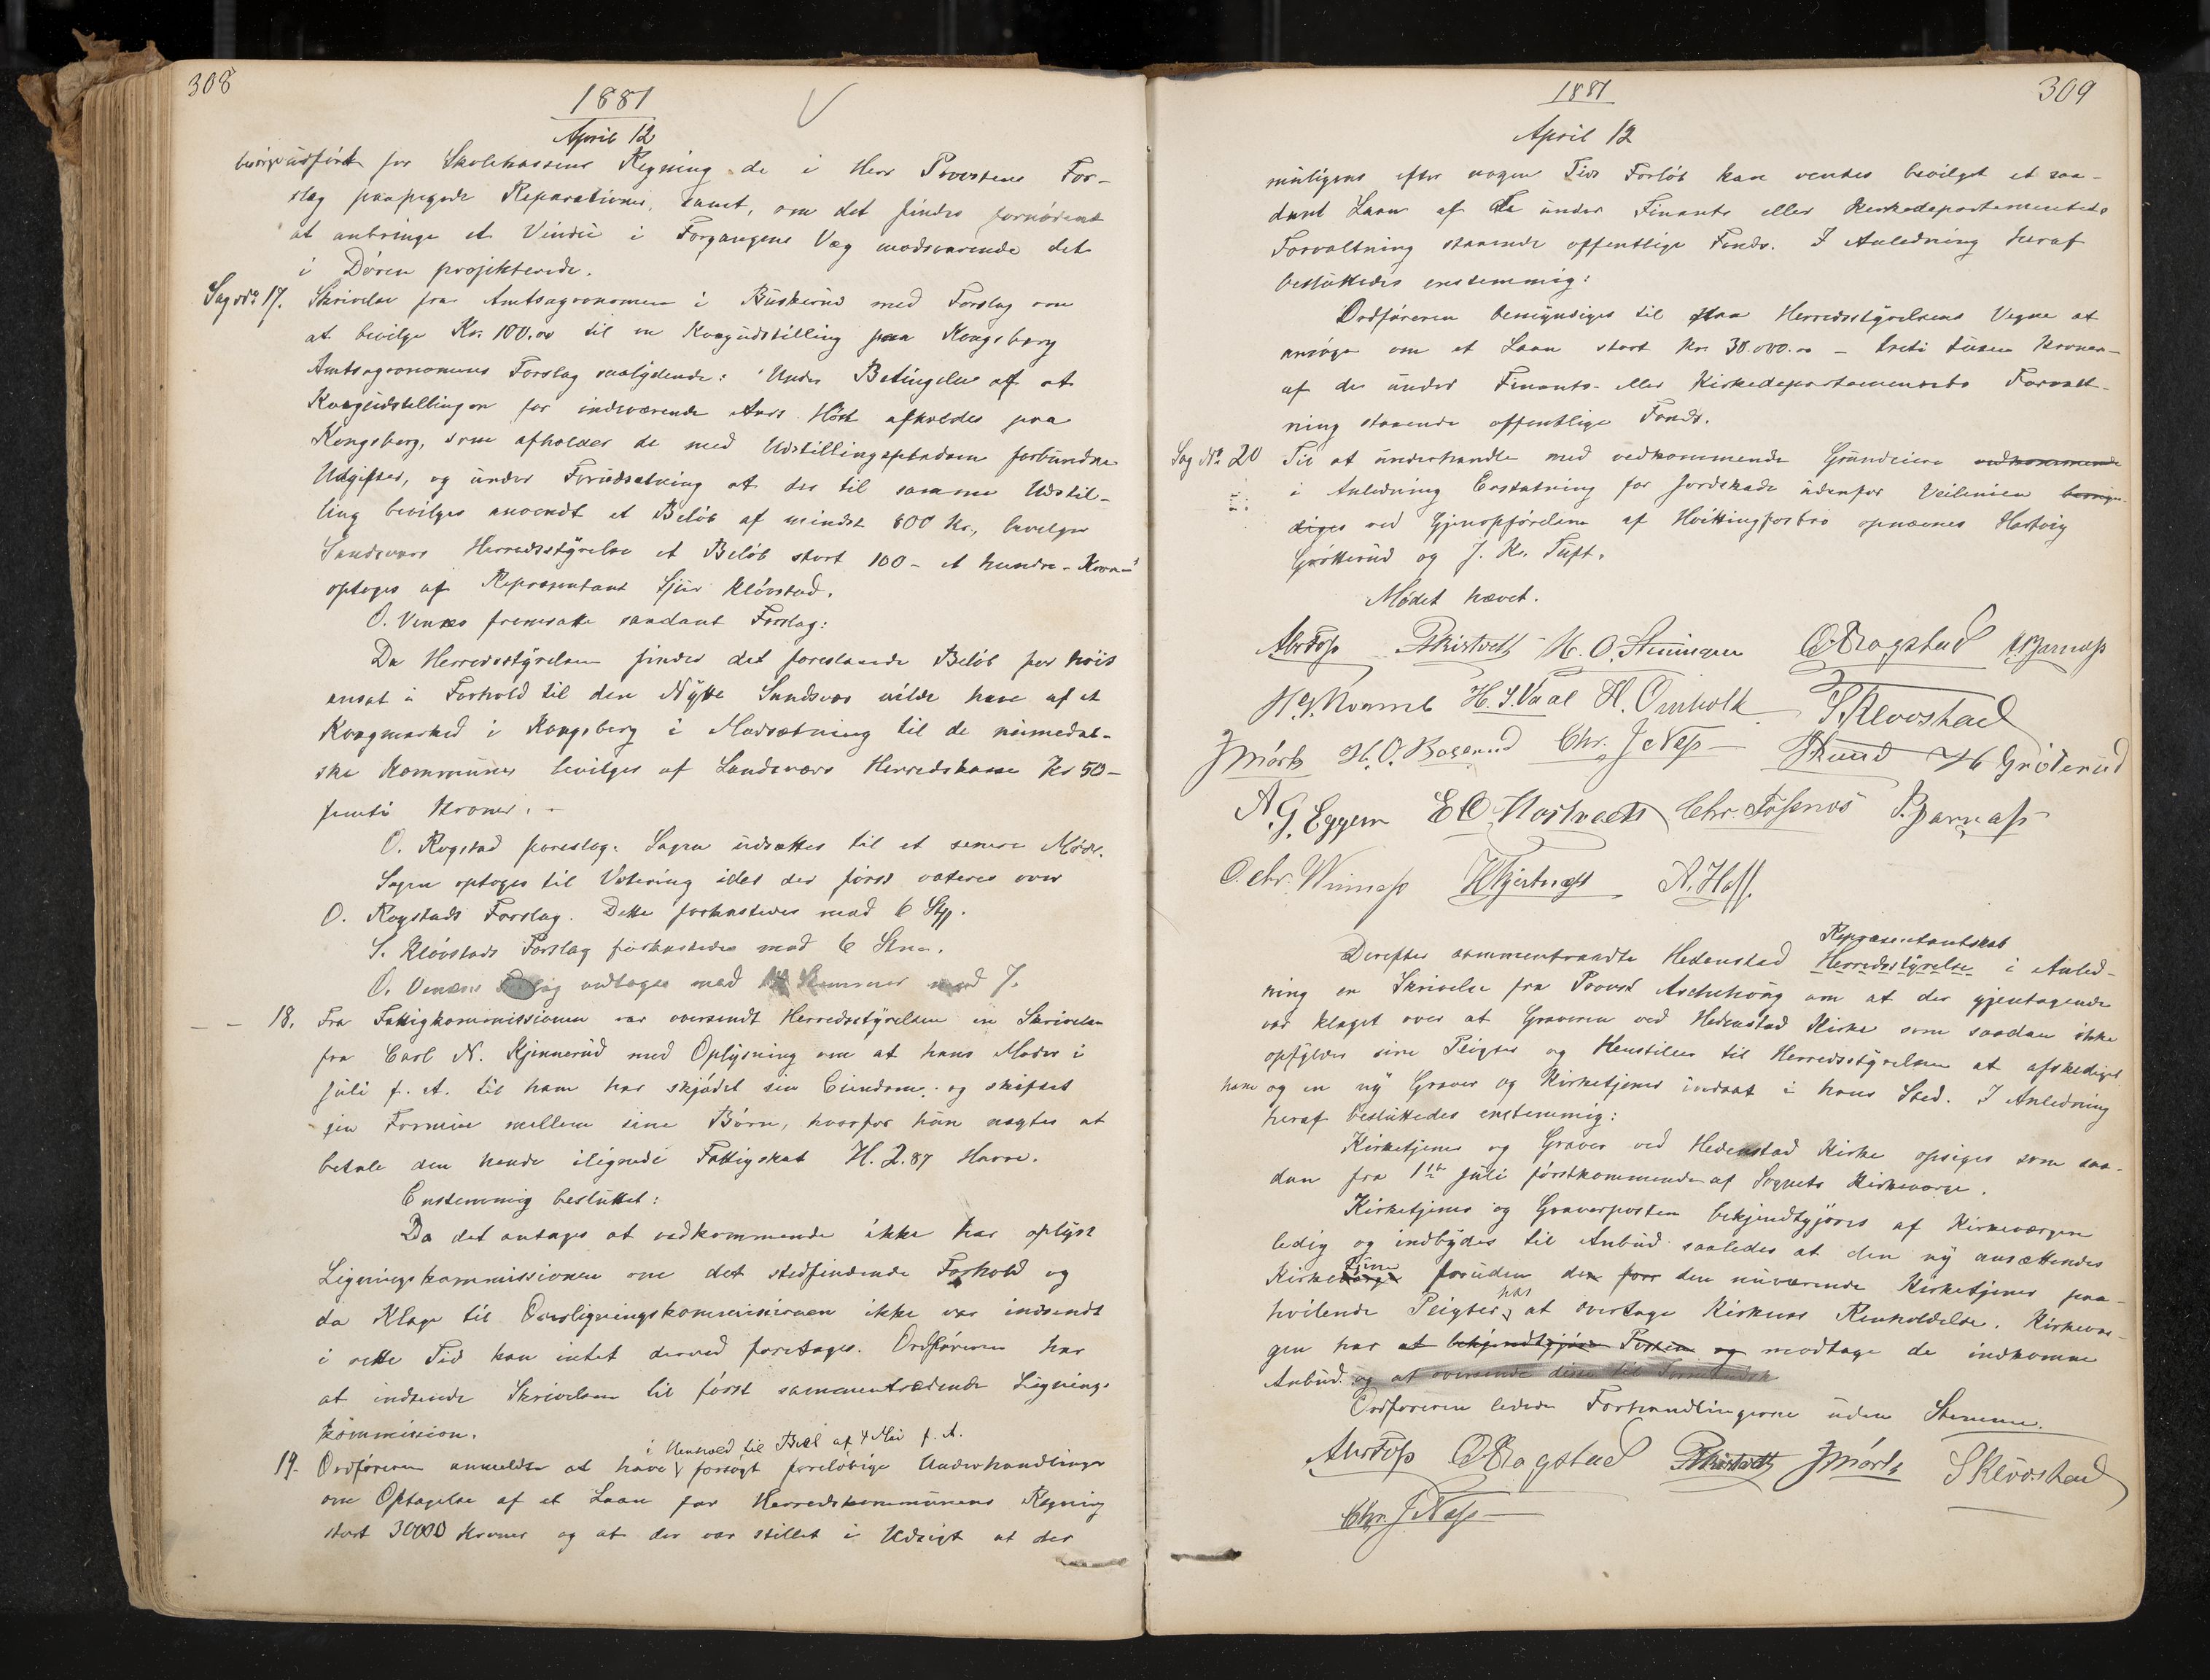 308
1881
April 12
besørge udført for Skolekassens Regning de i Herr Provstens For-
slag paapegede Reparationer, samt, om det findes fornødent
at anbringe et Vindu i Forgangens Væg modsvarende det
i Døren projekterede.
Sag No. 17. Skrivelse fra Amtsagronomen i Buskerud med Forslag om
at bevilge Kr. 100.00 til en Kvægudstilling paa Kongsberg
Amtsagronomens Forslag saalydende: "Under Betingelse af at
Kvægudstillingen for indeværende Aars Høst afholdes paa
Kongsberg, som afholder de med Udstillingspladsen forbundne
Udgifter, og under Forudsætning at der til samme Udstil-
ling bevilges anvendt et Beløb af mindst 800 Kr., bevilger
Sandsværs Herredsstyrelse et Beløb stort 100 - et hundre - Kroner"
optoges af Repræsentant Sjur Kløvstad.
O. Venæs fremsatte saadant Forslag:
Da Herredsstyrelsen finder det foreslaaede Beløb for høit
ansat i Forhold til den Nytte Sandsvær vilde have af et
Kvægmarked i Kongsberg i Modsætning til de numedal-
ske Kommuner bevilges af Sandsværs Herredskasse Kr 50 -
femti Kroner. -
O. Rogstad foreslog: Sagen udsættes til et senere Møde.
Sagen optoges til Votering idet der først voteres over
O. Rogstads Forslag. Dette forkastedes mod 6 St.
S. Kløvstads Forslag forkastedes mod 6 Stm.
O. Venæss Forslag vedtoges med 14 Stemmer mod 7.
- - 18. Fra Fattigkommissionen var oversendt Herredsstyrelsen en Skrivelse
fra Carl N. Kjennerud med Oplysning om at hans Moder i
Juli f. A. til ham har skjødet sin Eiendom og skiftet
sin Formue mellem sine Børn, hvorfor hun nægter at
betale den hende ilignede Fattigskat H. 2.87 Harve.
Enstemmig besluttet:
Da det antages at vedkommende ikke har oplyst
Ligningskommissionen om det stedfindende Forhold og
da Klage til Overligningskommissionen ikke var indsendt
i rette Tid kan intet derved foretages. Ordføreren har
at indsende Skrivelsen til først sammentrædende Lignings
kommission.
i Henhold til Besl af 4 Mai f. A.
19. Ordføreren anmeldte at have forsøgt foreløbige Underhandlinger
om Optagelse af et Laan for Herredskommunens Regning
stort 30000 Kroner og at der var stillet i Udsigt at der
309
1881
April 12
muligens efter nogen Tids Forløb kan ventes bevilget et saa-
dant Laan af de under Finants eller Kirkedepartementets
Forvaltning staaende offentlige Fonds. I Anledning heraf
besluttedes enstemmig:
Ordføreren bemyndiges til paa Herredsstyrelsens Vegne at
ansøge om et Laan stort Kr. 30.000.00 - treti tusen Kroner -
af de under Finants- eller Kirkedepartementets Forvalt-
ning staaende offentlige Fonds.
Sag No. 20 Til at underhandle med vedkommende Grundeiere vedkommende
i Anledning Erstatning for Jordskade udenfor Veilinien
diges ved Gjenopførelsen af Hvittingfosbro opnævnes Hartvig
Grøtterud og J. Kr. Tuft.
Mødet hævet.
Abr Foss H. O. Stuiveren O Rogstad
H. S. Vaal H. Omholt S. Kløvstad
J Mørk H. O. Bagerud Chr. J. Næss Hb Grøterud
A. G. Eggern E O Mostvedt Chr. Fossnæs
O. Chr. Wiinæss A. Hoff.
Repræsentantskab
Derefter sammentraadte Hedenstad Herredsstyrelse i Anled-
ning en Skrivelse fra Provst Aschehoug om at der gjentagende
var klaget over at Graveren ved Hedenstad Kirke som saadan ikke
opfylder sine Pligter og Henstillen til Herredsstyrelsen at afskediget
ham og en ny Graver og Kirketjener indsat i hans Sted. I Anledning
heraf besluttedes enstemmig:
Kirketjener og Graver ved Hedenstad Kirke opsiges som saa-
dan fra 1ste Juli førstkommende af Sognets Kirkeværge.
Kirketjener og Graverposten bekjendtgjøres af Kirkeværgen
ledig og indbydes til Anbud saaledes at den ny ansættendes
tjener
Kirkeværge foruden den for den nuværende Kirketjener paa-
har
hvilende Pligter, at overtage Kirkens Renholdelse. Kirkevær-
gen har at bekjendtgjøre Posten og modtage de indkomne
Anbud og at oversende disse til
Ordføreren ledede Forhandlingerne uden Stemme.
Abr Foss O Rogstad J Mørk S Kløvstad
Chr. J Næss